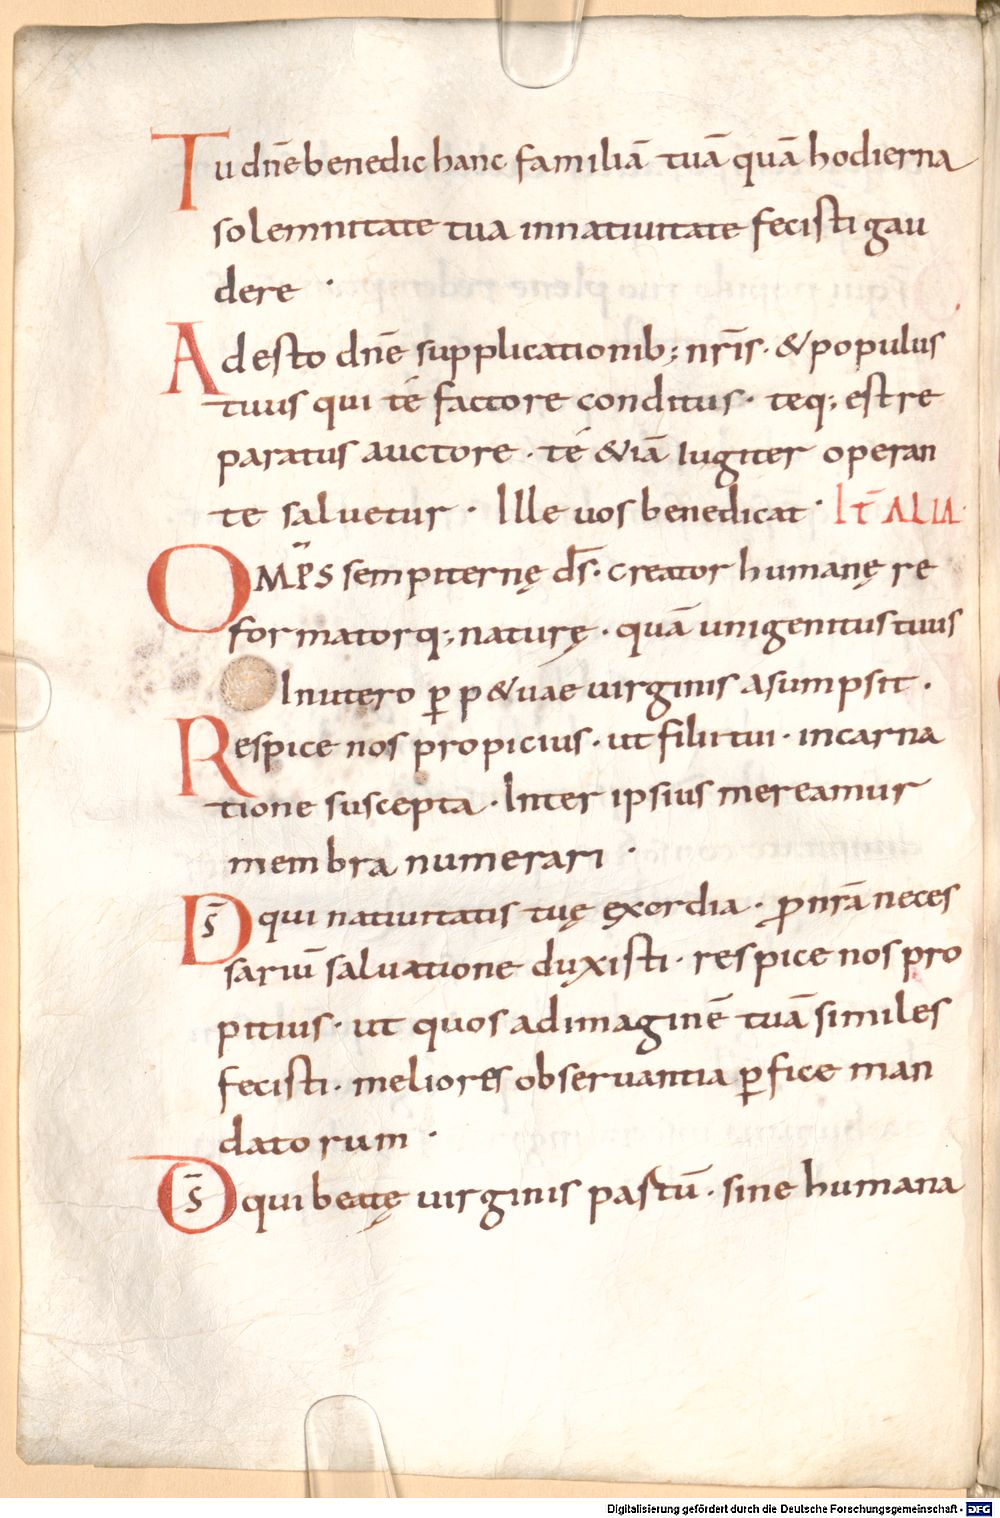 Tu dnē benedic hanc familiā tuā quā hodierna
solemnitate tua in natiuitate fecisti gau
dere ·
Adesto dnē supplicationib; nrīs · & populus
tuus qui té factore conditus · teq; est re
paratus auctore · té &iā iugiter operan
te saluetur · Ille uos benedicat · IT̄ ALIA
OMP̄S sempiternę ds̄ · creator humanę re
formatorq; naturę · quā unigenitus tuus
In utero ꝑ p&uae uirginis asumpsit ·
Respice nos propicius · ut filii tui · incarna
tione suscepta · Inter ipsius mereamur
membra numerari ·
Ds̄ qui natiuitatis tuę exordia · ꝓ nrā neces
sariū saluatione duxisti · respice nos pro
pitius · ut quos ad imaginē tuā similes
fecisti · meliores obseruantia ꝑfice man
datorum ·
Ds̄ qui beatę uirginis pastū · sine humana
Digitalisierung gefördert durch die Deutsche Forschungsgemeinschaft - DFG